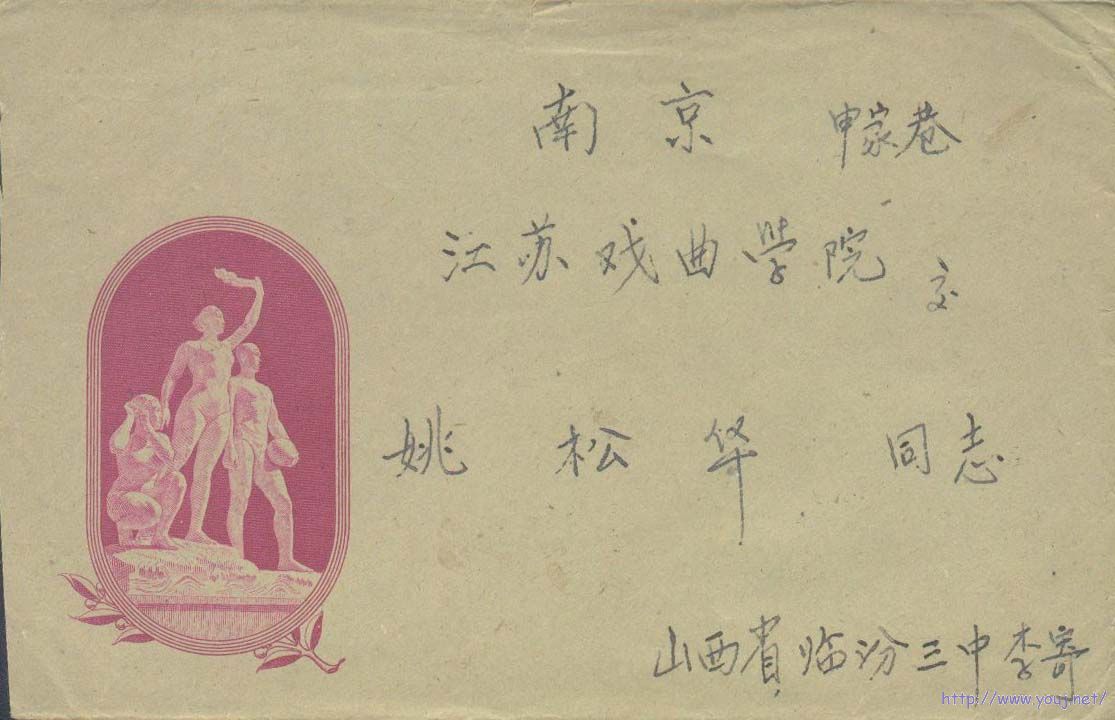 南京 申家巷
江苏戏曲学院 交
姚松华 同志
山西省临汾三中李寄
http://www.youj.net/